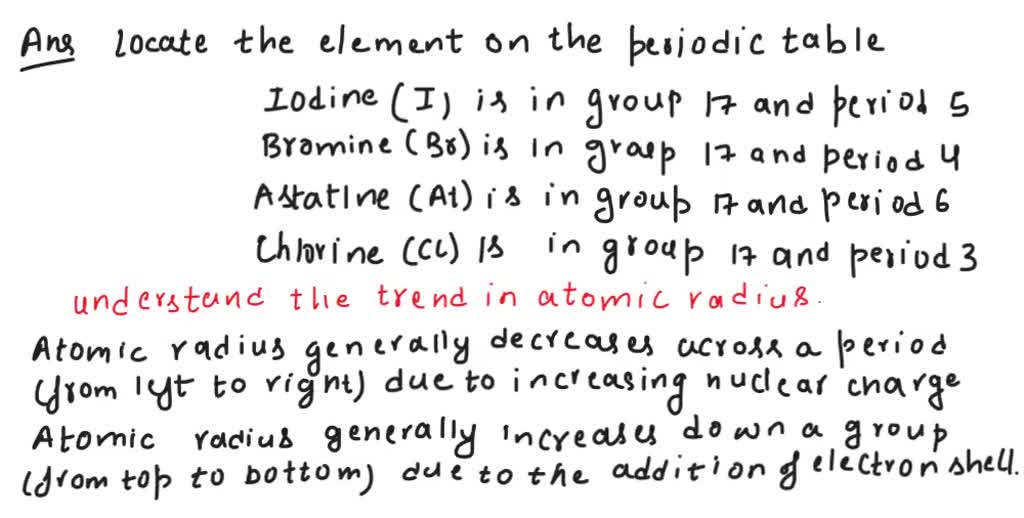 Ans locate the element on the periodic table
Iodine (I) is in group 17 and period 5
Bromine (Br) is in graep 17 and period 4
Astatine (At) is in group 17 and period 6
Chlorine (CL) is in group 17 and period 3
understand the trend in atomic radius.
Atomic radius generally decreases across a period
(from left to right) due to increasing nuclear charge
Atomic radius generally increases down a group
(from top to bottom) due to the addition of electron shell.